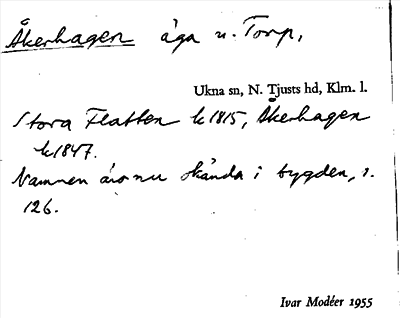 Åkerhagen äga u. Torp,
Ukna sn, N. Tjusts hd, Klm. l.
Stora Flatten k 1815, Åkerhagen
k 1847.
Namnen äro nu okända i bygden, s.
126.
Ivar Modéer 1955